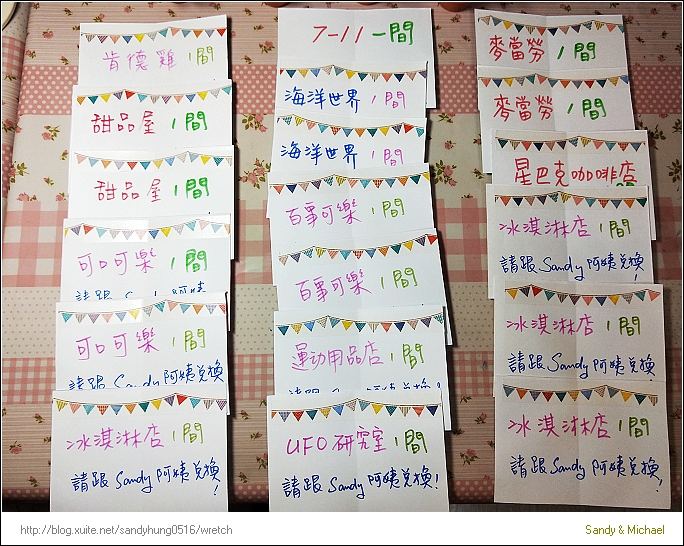 肯德雞 1間
甜品屋 1間
甜品屋 1間
可口可樂 1間
請跟 Sandy 阿姨
可口可樂 1間
請跟 Sandy 阿姨兌換
冰淇淋店 1間
請跟 Sandy 阿姨兌換!
7-11 一間
海洋世界 1間
海洋世界 1間
百事可樂 1間
百事可樂 1間
運动用品店 1間
請跟 Sandy 阿姨兌換!
UFO 研究室 1間
請跟 Sandy 阿姨兌換!
麥當勞 1間
麥當勞 1間
星巴克咖啡店
冰淇淋店 1間
請跟 Sandy 阿姨兌換!
冰淇淋店 1間
請跟 Sandy 阿姨兌換!
冰淇淋店 1間
請跟 Sandy 阿姨兌換!
http://blog.xuite.net/sandyhung0516/wretch
Sandy & Michael